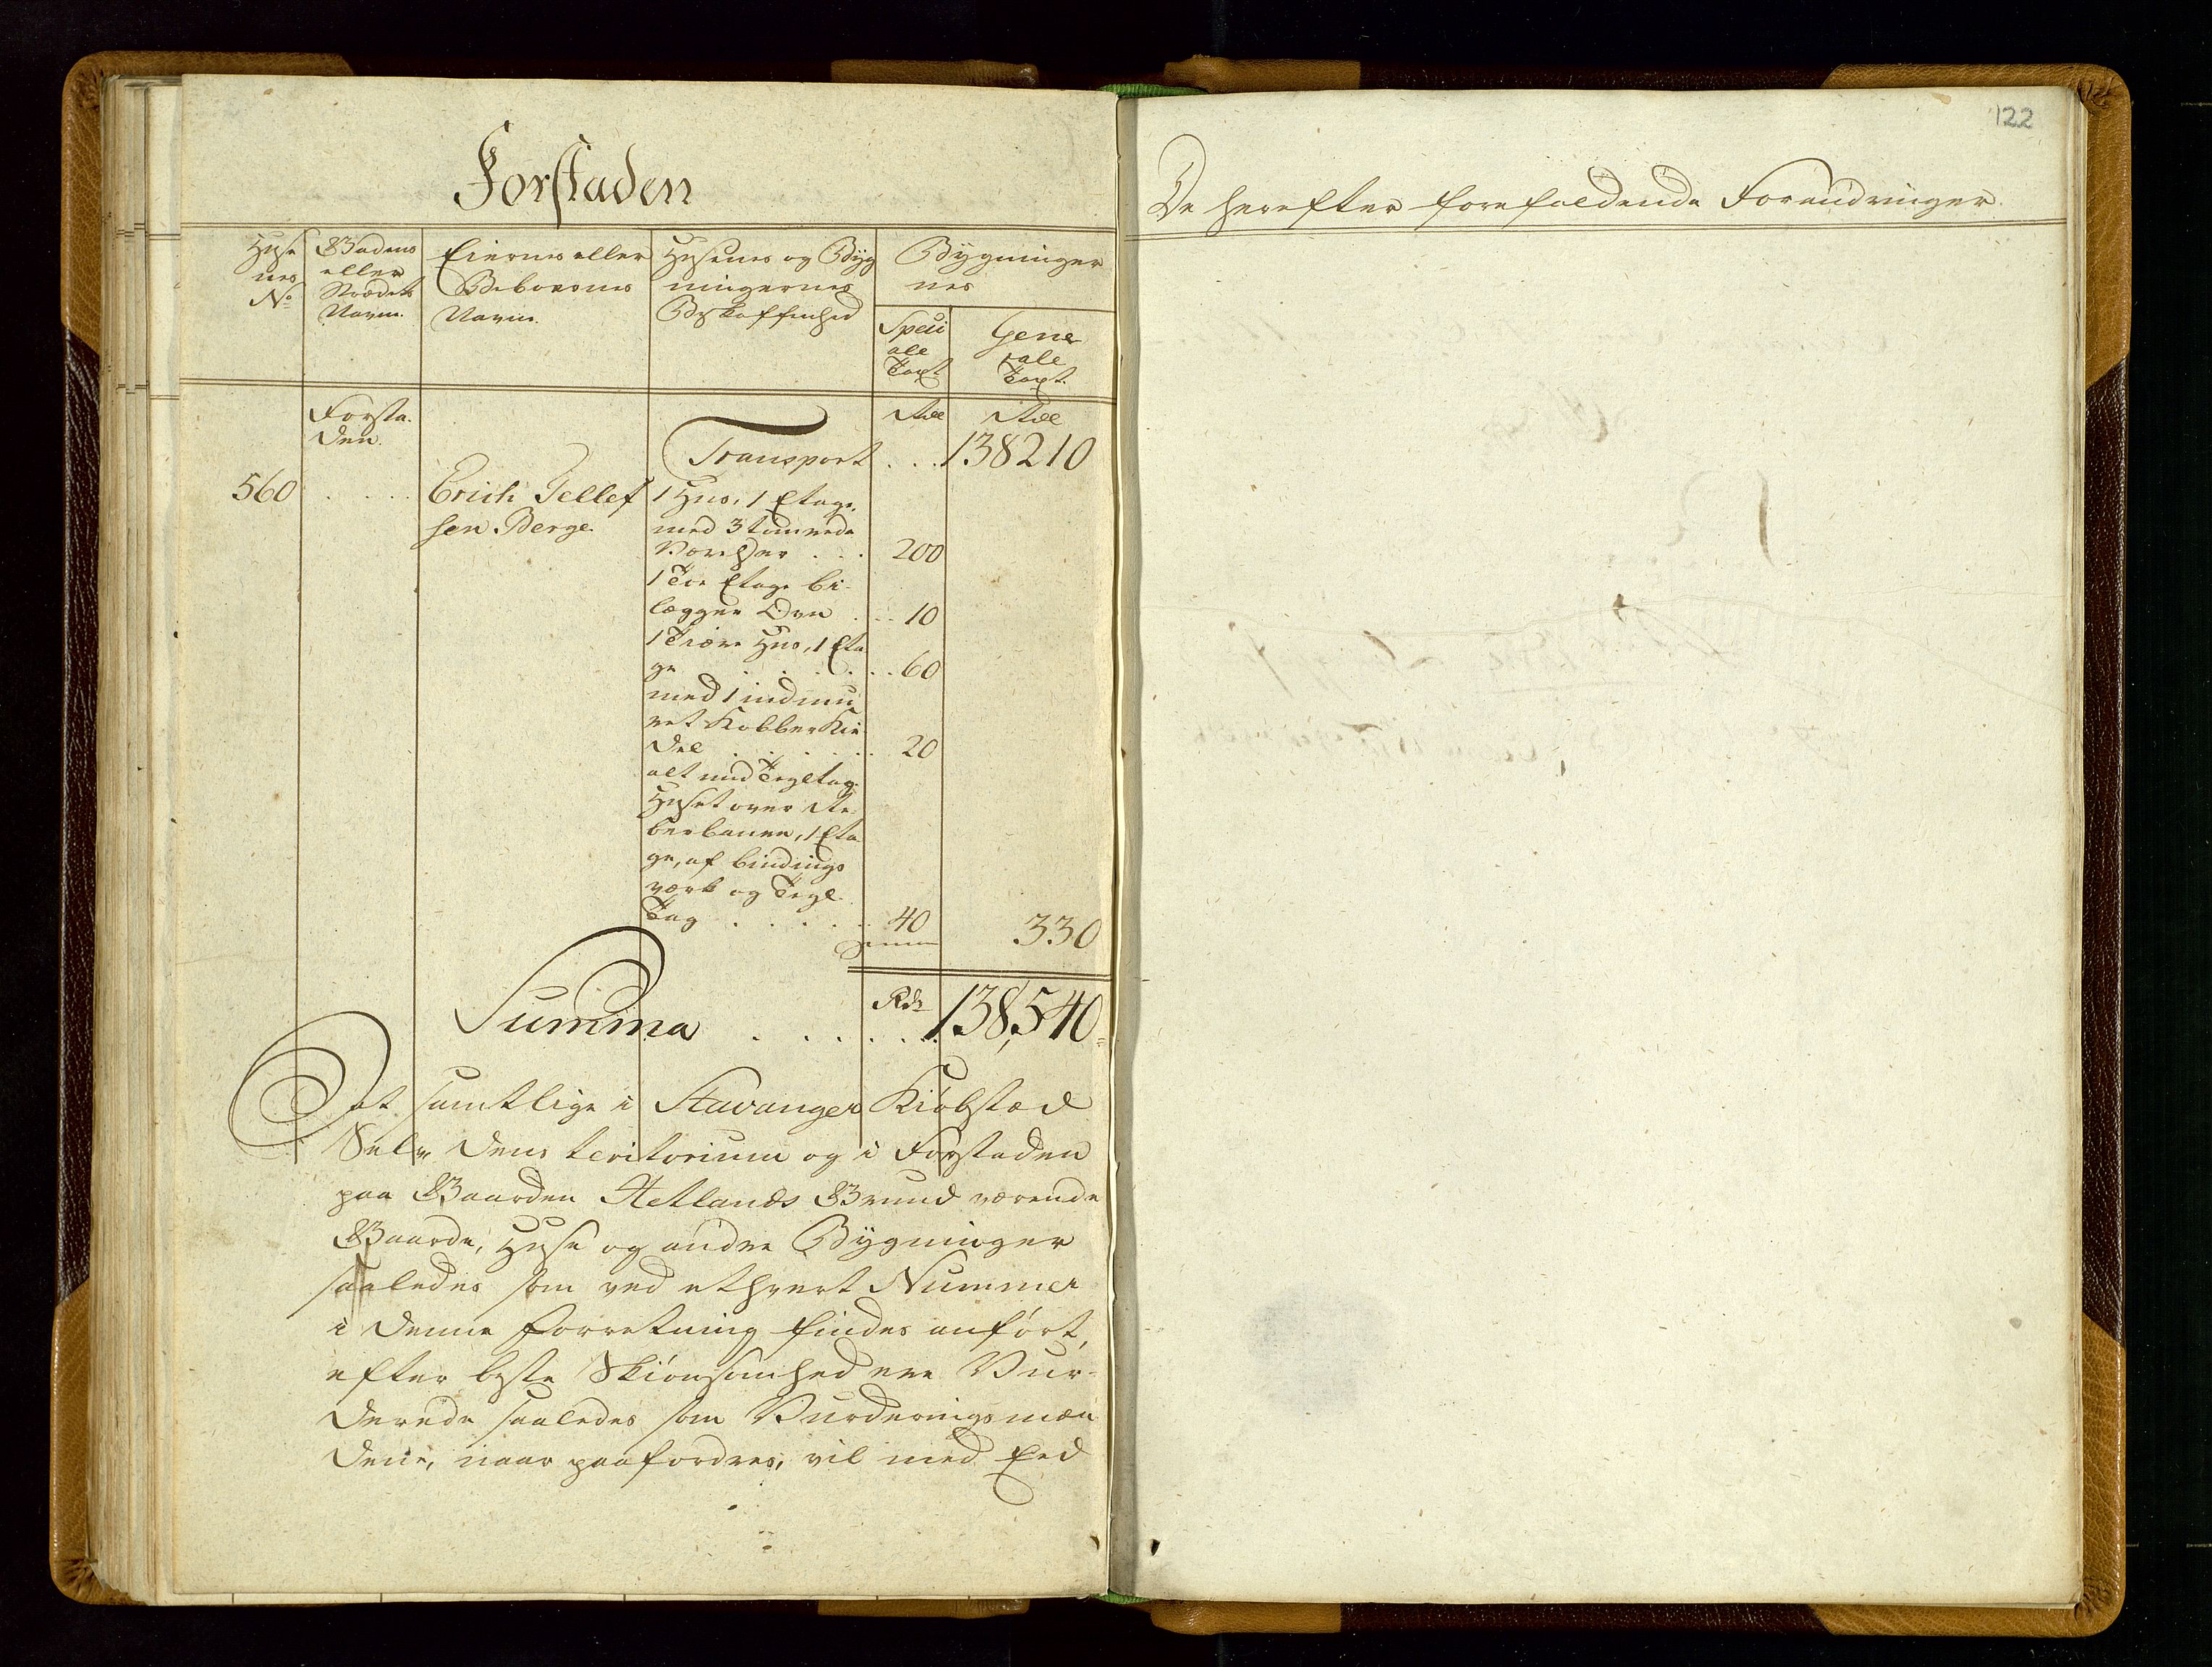 Forstaden
Huse
nes
No
Gadens
eller
Strædets
Navne.
Eiernes eller
Beboernes
Navne.
Husenes og Byg
ningernes
Beskaffenhed
Bygninger
nes
Speci
ale
Taxt
Gene
rale
Taxt.
Forsta-
den.
Rdl
Rdl
Transport . . . 138210
560 . . . . Erich Tellef
sen Berge.
1 Hus, 1 Etage,
med 3 tømrede
Værelser . . . 200
1 Toe Etage bi-
lægger Ovn . . . 10
1 Tiære Hus, 1 Eta
ge . . . . . 60
med 1 indmu
ret Kobber Kie
del . . . . . 20
alt med Tegltag.
Huset over Re
berbanen, 1 Eta
ge, af bindings
værk og Tegl-
Tag . . . . . 40
330
Summa . . . . . . Rdr 138,540=
At samtlige i Stavanger Kiøbstæd
Selv dens teritorium og i Forstaden
paa Gaarden Hetlands Grund værende
Gaarde, Huse og andre Bygninger
saaledes som ved ethvert Nummer
i denne Forretning findes anført,
efter beste Skiønsomhed ere Vur-
derede saaledes som Vurderingsmæn
dene, naar paafordres, vil med Eed
122
De herefter forefaldende Forandringer.